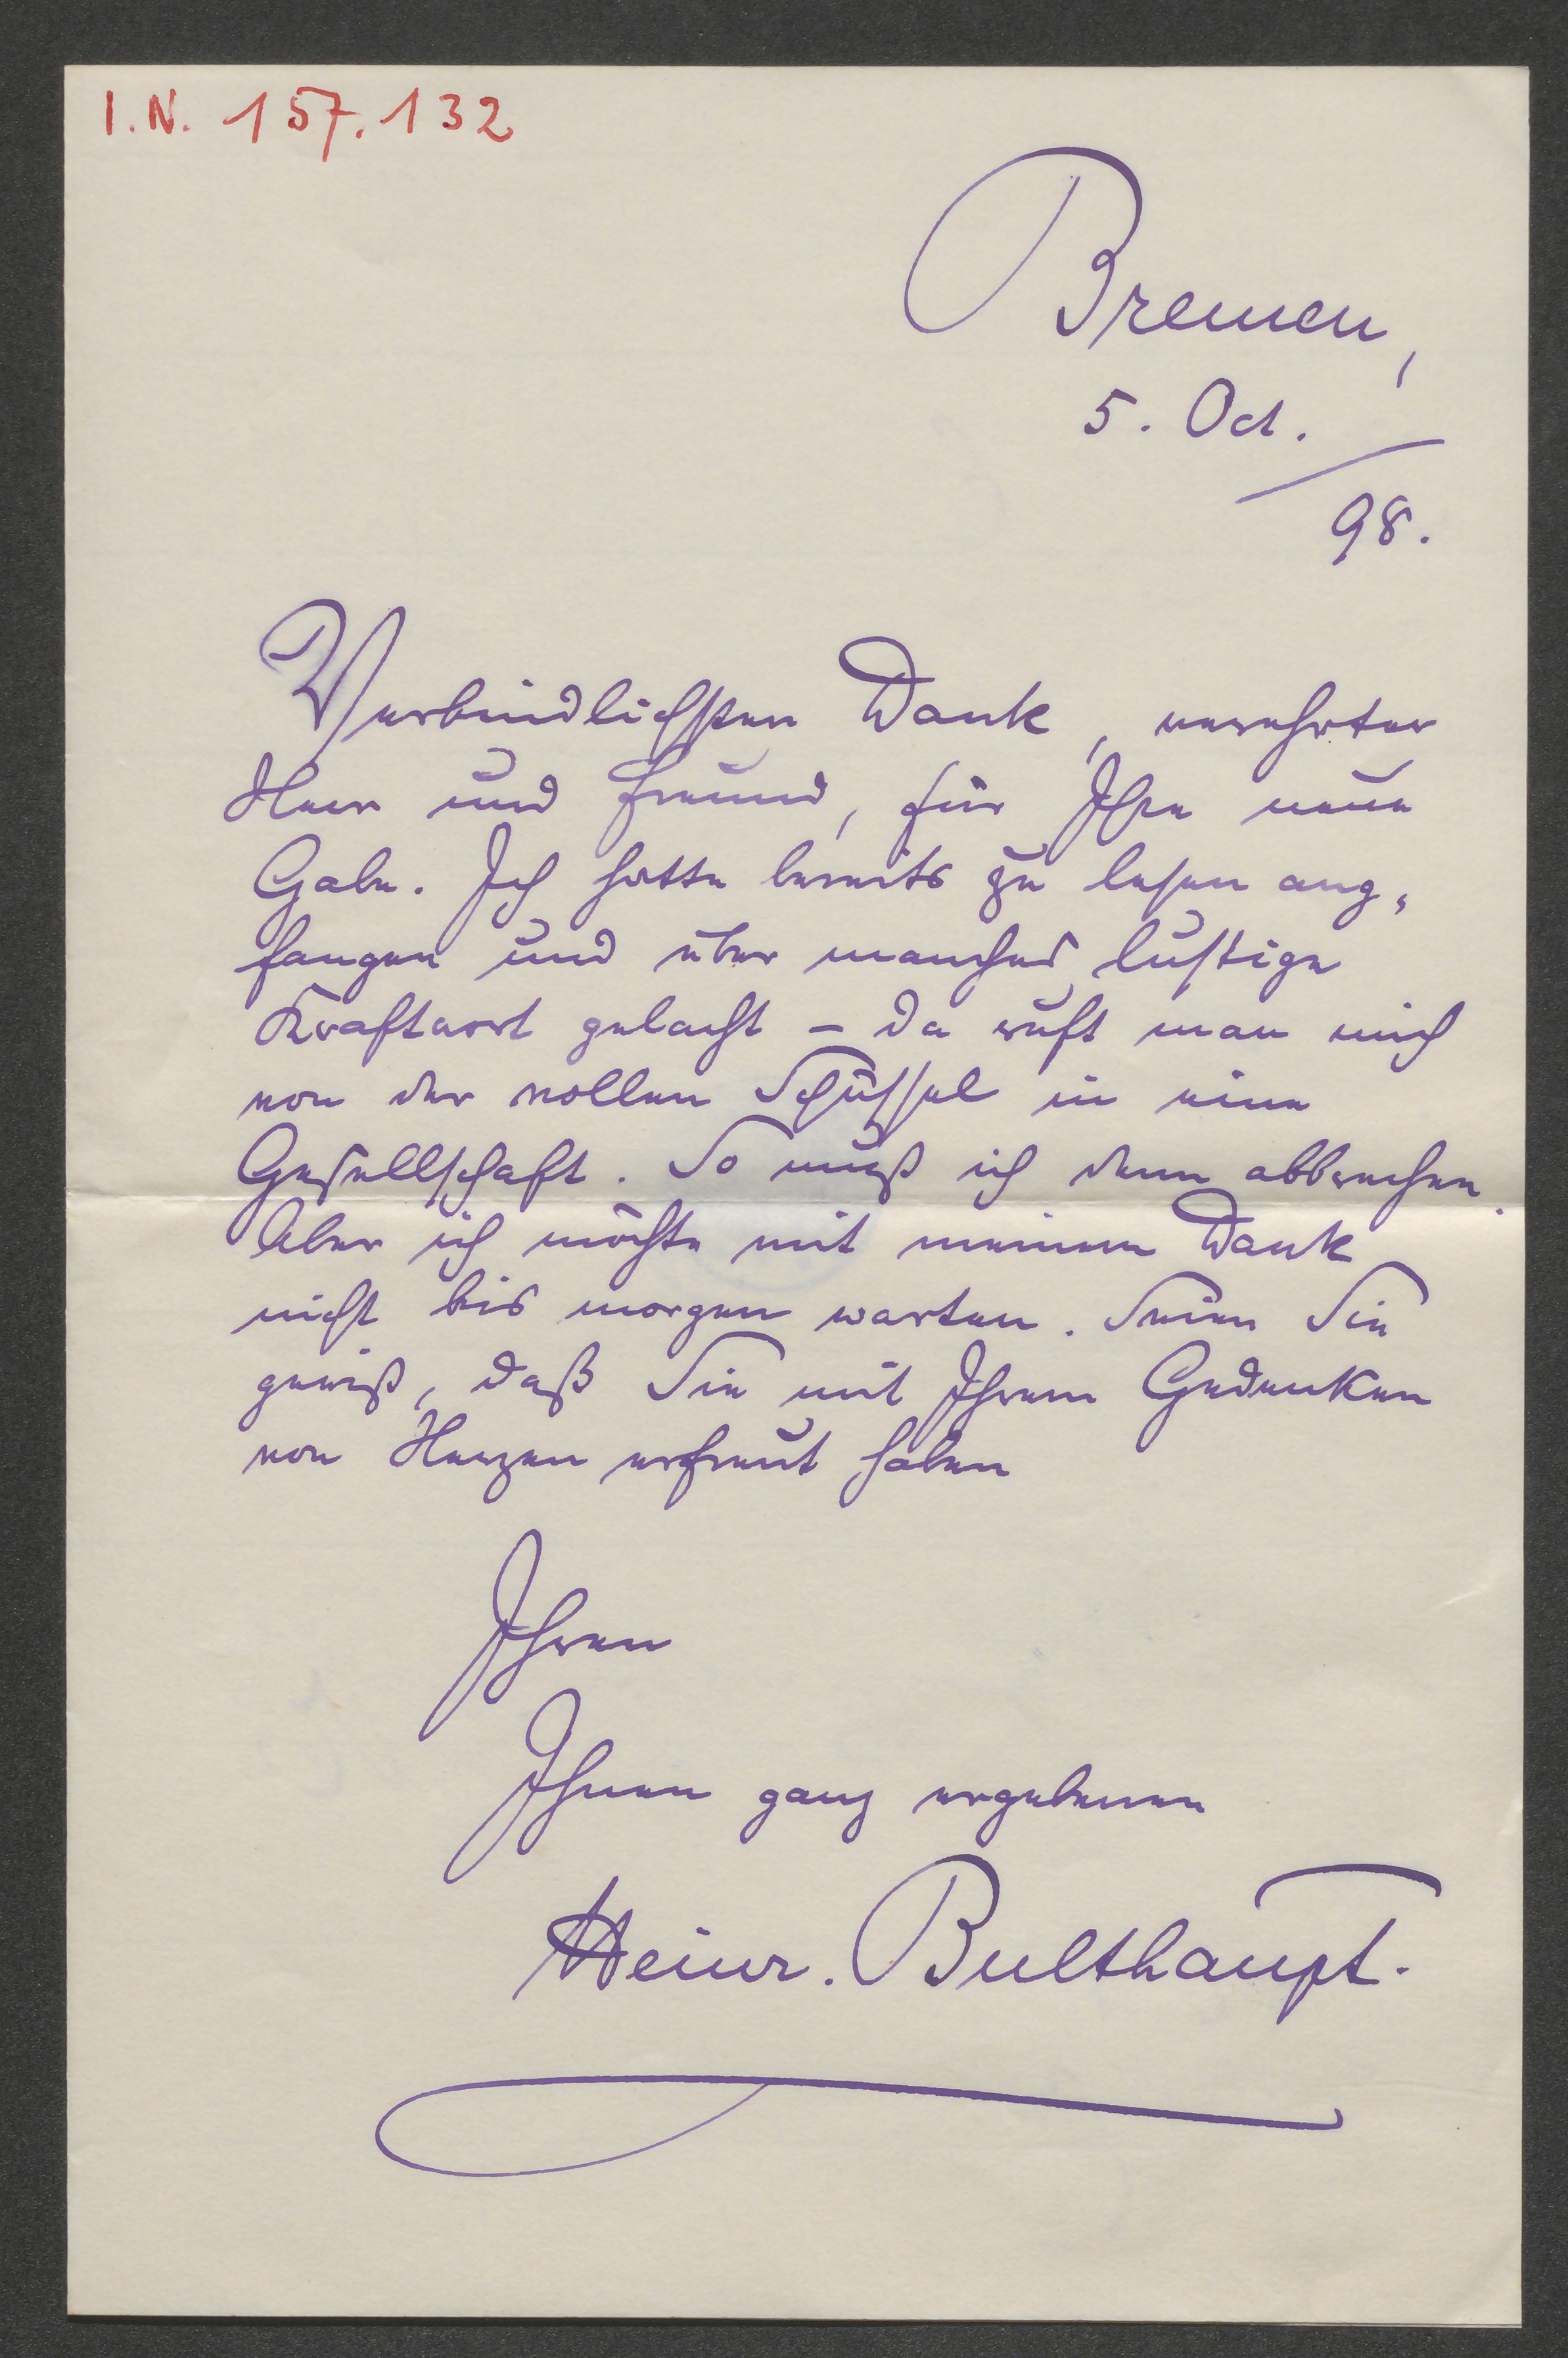 I.N. 157.132
Bremen,
5. Oct.
98.
Verbindlichsten Dank, verehrter
Herr und Freund, für Ihre neue
Gabe. Ich hatte bereits zu lesen ang-
fangen und über manches lustige
Kraftwort gelacht – da ruft man mich
von der vollen Schüssel in eine
Gesellschaft. So muß ich denn abbrechen.
Aber ich möchte mit meinem Dank
nicht bis morgen warten. Seien Sie
gewiß, daß Sie mit Ihrem Gedenken
von Herzen erfreut haben
Ihren
Ihnen ganz ergebenen
Heinr. Bulthaupt.